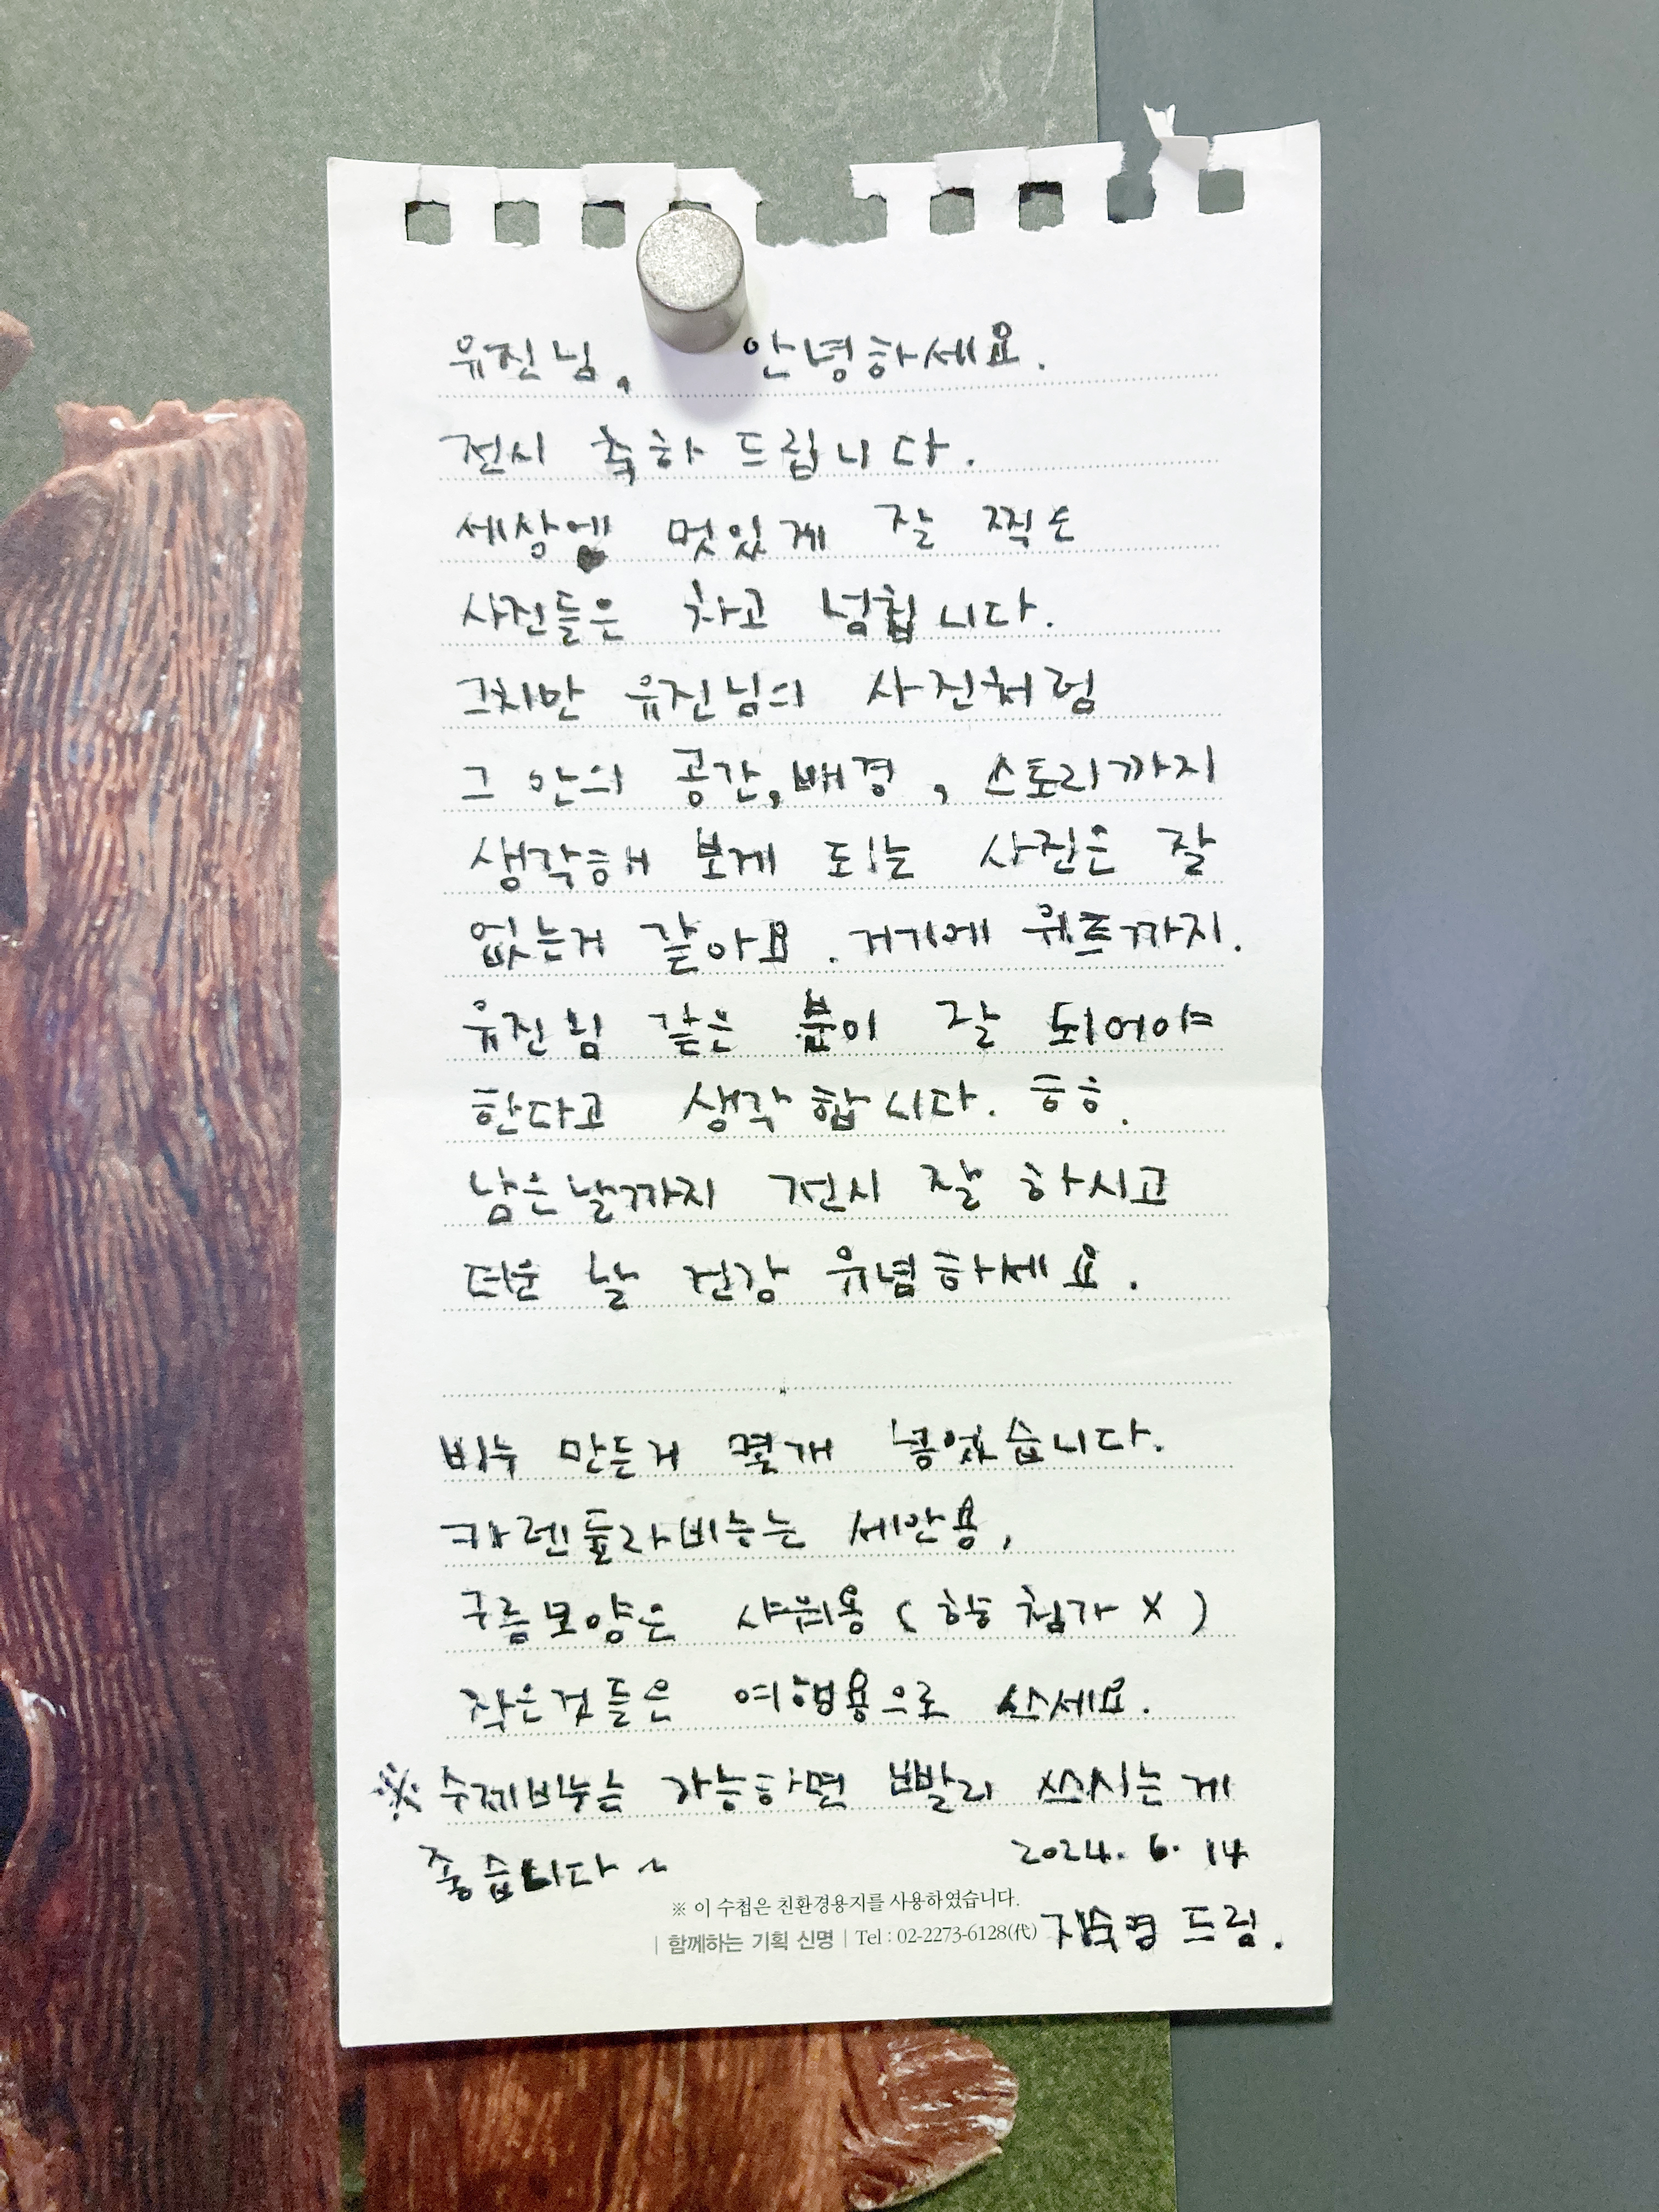 유진님, 안녕하세요.
전시 축하 드립니다.
세상엔 멋있게 잘 찍은
사진들은 차고 넘칩니다.
그치만 유진님의 사진처럼
그 안의 공간, 배경, 스토리까지
생각해 보게 되는 사진은 잘
없는거 같아요. 거기에 위트까지.
유진님 같은 분이 잘 되어야
한다고 생각합니다. 흐흐.
남은날까지 전시 잘 하시고
더운 날 건강 유념하세요.
비누 만든거 몇개 넣었습니다.
카렌듈라비누는 세안용,
구름모양은 샤워용 (향 첨가 X)
작은것들은 여행용으로 쓰세요.
※ 수제비누는 가능하면 빨리 쓰시는게
좋습니다~ 2024. 6. 14
※ 이 수첩은 친환경용지를 사용하였습니다.
| 함께하는 기획 신명 | Tel : 02-2273-6128(代) 드림.